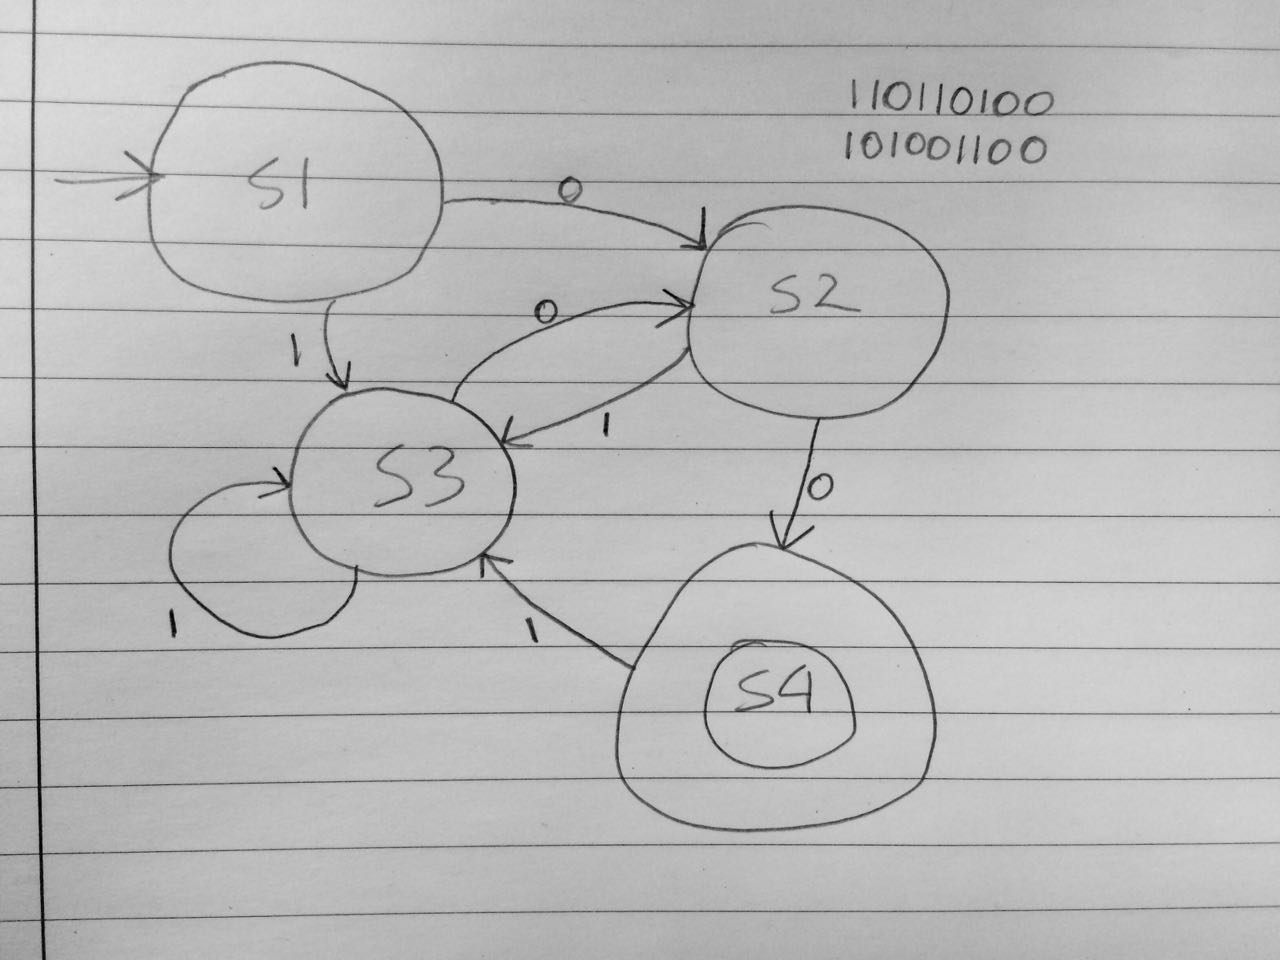 110110100
101001100
S1
0
S2
0
1
1
S3
0
1
1
S4